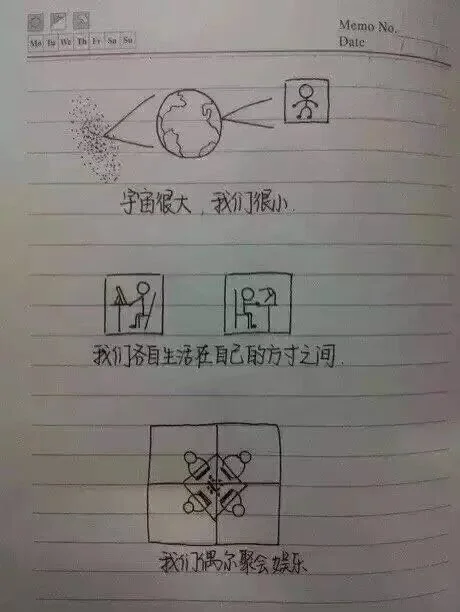 Memo No.
Mo Tu We Th Fr Sa Su
Date
宇宙很大，我们很小.
我们各自生活在自己的方寸之间.
我们偶尔聚会娱乐